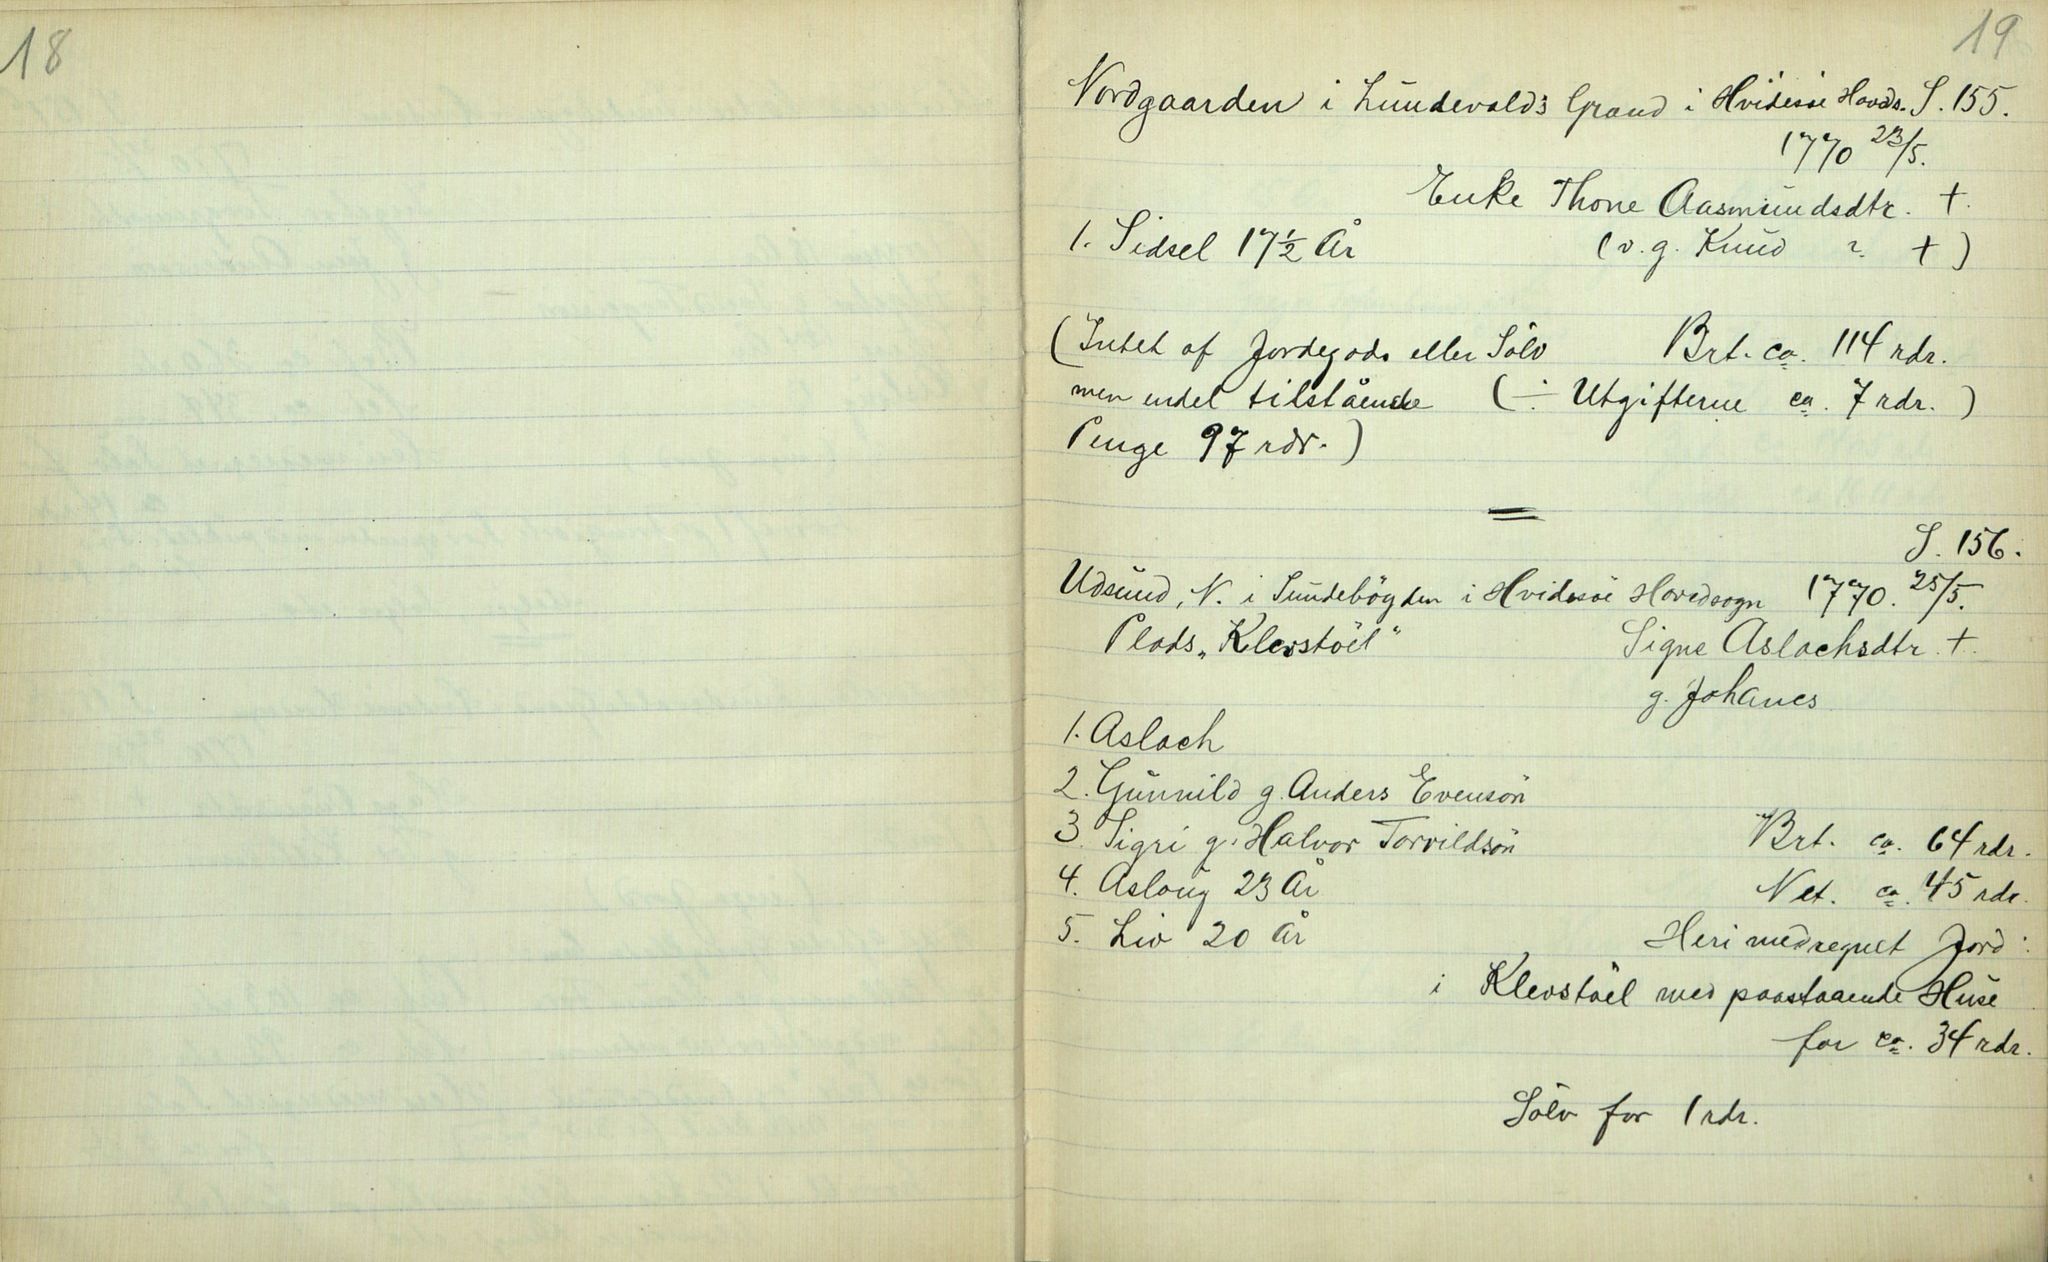 18
19
Nordgaarden i Lundevalds Grand i Hvidesøe Hovds. S. 155.
1770 23/5.
Enke Thone Aasmundsdtr. +.
1. Sidsel 17½ År (v. g. Knud ? +)
(Intet af Jordegods eller Sölv Brt. ca. 114 rdr.
men endel tilstående (÷ Utgifterne ca. 7 rdr.)
Penge 97 rdr.)
S. 156.
Udsund, N. i Sundebögden i Hvidesöe Hovedsogn 1770. 25/5.
Plads „Klevstöel“ Signe Aslachsdtr. +.
g. Johanes
1. Aslach
2. Gunnild g. Anders Evensön
3. Sigri g. Halvor Torvildsön Brt. ca. 64 rdr.
4. Asloug 23 År Net. ca. 45 rdr.
5. Liv 20 År Heri medregnet Jord:
i Klevstöel med paastaaende Huse
for ca. 34 rdr.
Sölv for 1 rdr.